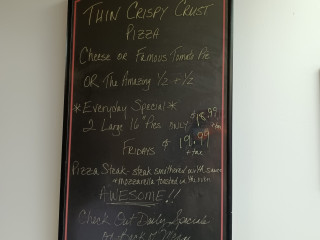 Thin Crispy Crust
Pizza
Cheese or Famous Tomato Pie
OR The Amazing 1/2 + 1/2
*Everyday Special*
2 Large 16" Pies ONLY $18.99
+tax
Fridays $19.99
+tax
Pizza Steak - steak smothered in sauce
+ mozzarella toasted in the oven
AWESOME!!
Check Out Daily Specials